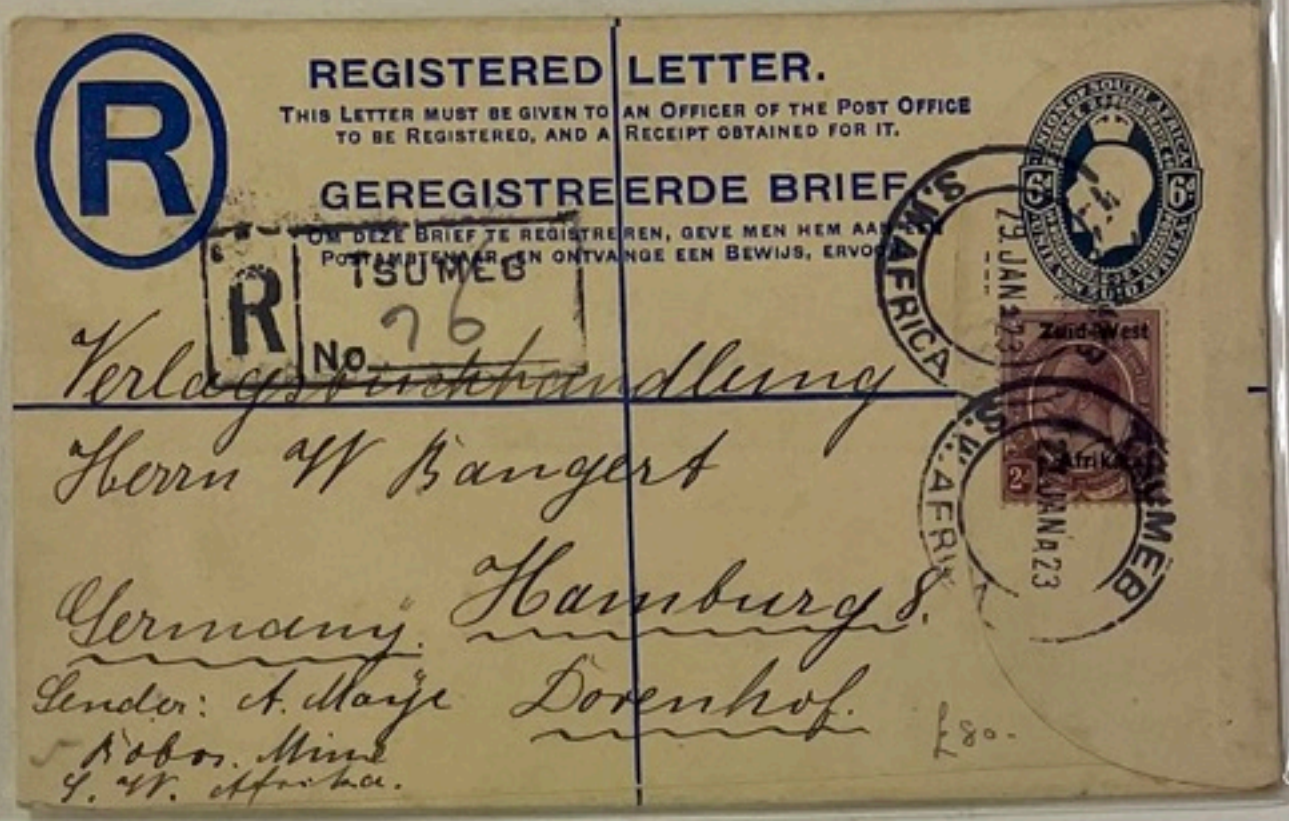 R
REGISTERED LETTER.
THIS LETTER MUST BE GIVEN TO AN OFFICER OF THE POST OFFICE
TO BE REGISTERED, AND A RECEIPT OBTAINED FOR IT.
GEREGISTREERDE BRIEF
OM DEZE BRIEF TE REGISTREREN, GEVE MEN HEM AAN EEN
POSTAMBTENAAR, EN ONTVANGE EEN BEWIJS, ERVOOR
UNION OF SOUTH AFRICA
6d
R TSUMEB
No 76
S.W. AFRICA
29 JAN 23
Zuid-West
Afrika
2d
S.W. AFRIKA
TSUMEB
JAN 23
Verlagsbuchhandlung
Herrn W Bangert
Hamburg 8.
Germany.
Dovenhof.
Sender: A.
Mine
S. W. Afrika.
£80-